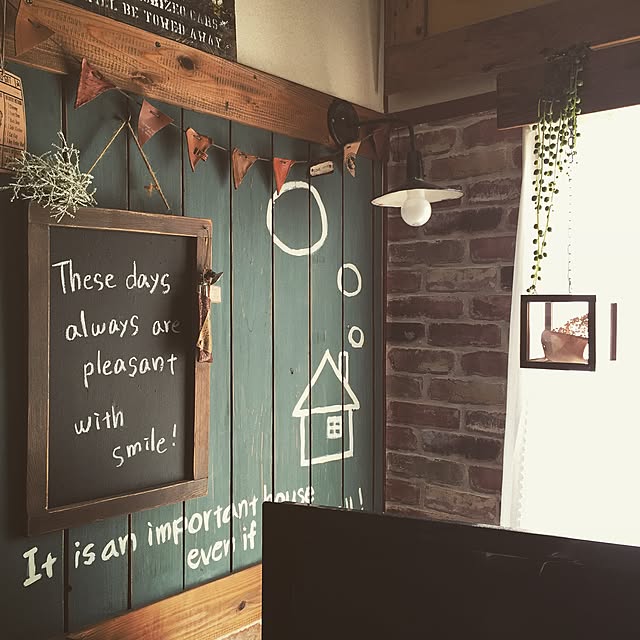 WILL BE TOWED AWAY
These days
always are
pleasant
with
smile!
It is an important house
even if